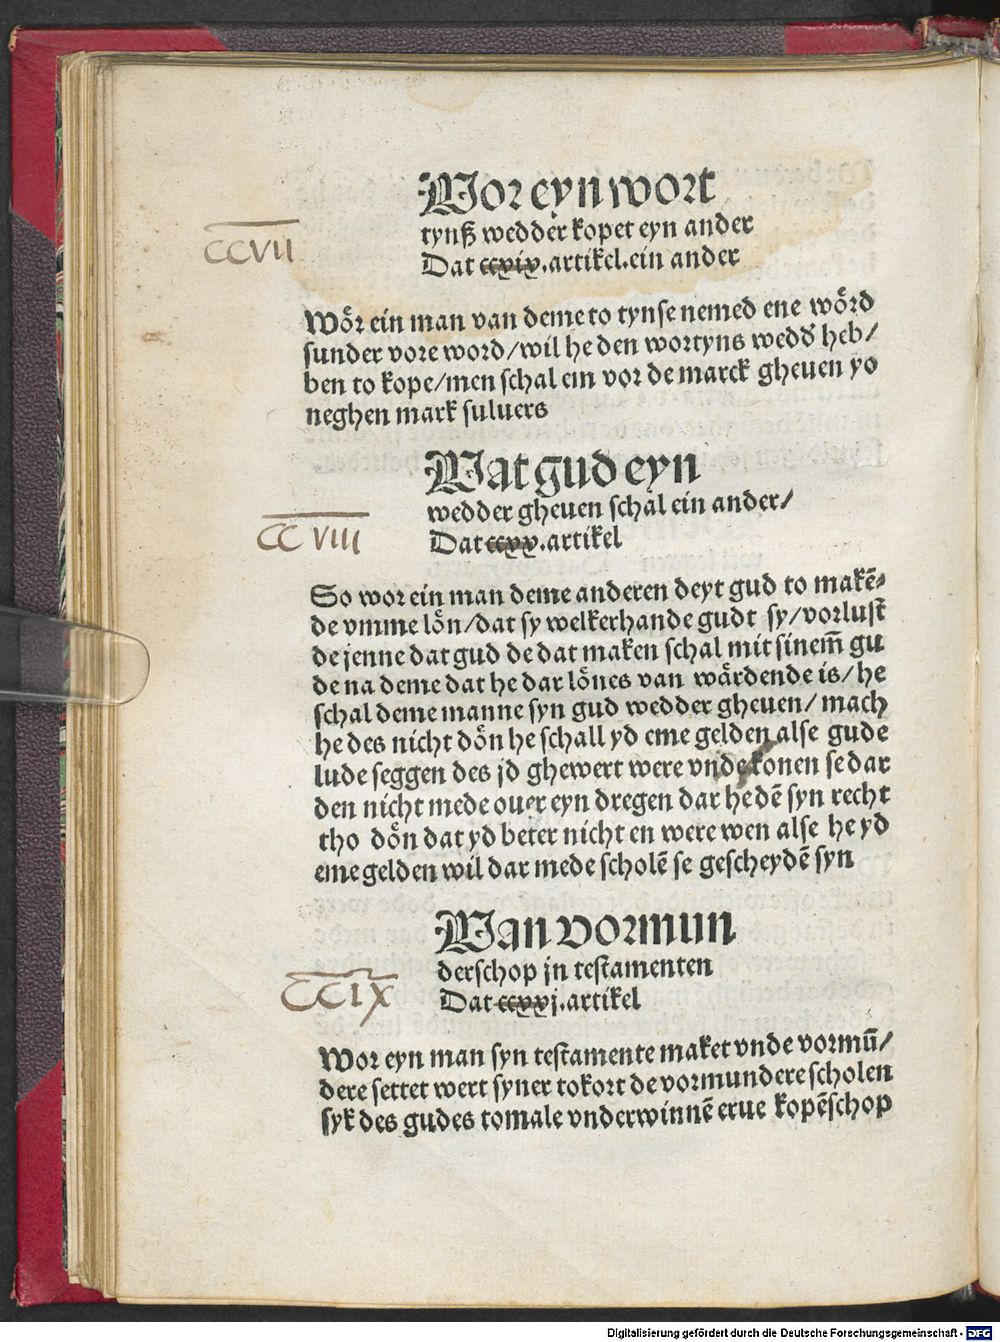 Wor eyn wort
tynß wedder kopet eyn ander
CCVII
Dat ccxix.artikel.ein ander
Wör ein man van deme to tynse nemed ene wörd
sunder vore word/wil he den wortyns wedd heb/
ben to kope/men schal em vor de marck gheuen yo
neghen mark suluers
Wat gud eyn
wedder gheuen schal ein ander/
CCVIII
Dat ccxx.artikel
So wor ein man deme anderen deyt gud to makē-
de vmme lön/dat sy welkerhande gudt sy/vorlust
de jenne dat gud de dat maken schal mit sinem̄ gu
de na deme dat he dar lönes van wärdende is/he
schal deme manne syn gud wedder gheuen/mach
he des nicht dön he schall yd eme gelden alse gude
lude seggen des jd ghewert were vnde konen se dar
den nicht mede ouer eyn dregen dar he dē syn recht
tho dön dat yd beter nicht en were wen alse he yd
eme gelden wil dar mede scholē se gescheydē syn
Van vormun
derschop jn testamenten
CCIX
Dat ccxxj.artikel
Wor eyn man syn testamente maket vnde vormū/
dere settet wert syner tokort de vormundere scholen
syk des gudes tomale vnderwinnē erue kopēschop
Digitalisierung gefördert durch die Deutsche Forschungsgemeinschaft - DFG